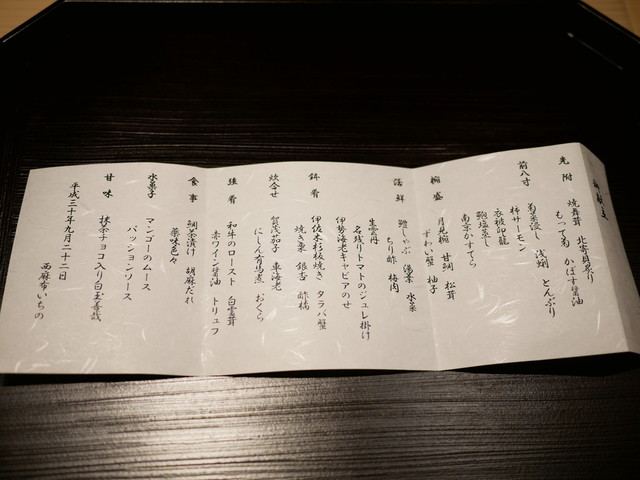 先附 焼舞茸 北寄貝炙り
もって菊 かぼす醤油
前八寸 菊菜浸し 浅蜊 とんぶり
柿サーモン
衣被印籠
鮑塩蒸し
南京かすてら
椀盛 月見椀 甘鯛 松茸
ずわい蟹 柚子
海鮮 鱧しゃぶ 湯葉 水菜
ちり酢 梅肉
生雲丹
名残りトマトのジュレ掛け
伊勢海老キャビアのせ
鉢肴 伊佐木杉板焼き タラバ蟹
焼き栗 銀杏 酢橘
炊合せ 賀茂茄子 車海老
にしん有馬煮 おくら
強肴 和牛のロースト 白霊茸
赤ワイン醤油 トリュフ
食事 鯛茶漬け 胡麻だれ
薬味色々
水菓子 マンゴーのムース
パッションソース
甘味 抹茶チョコ入り白玉善哉
平成三十年九月二十二日
西麻布いちの